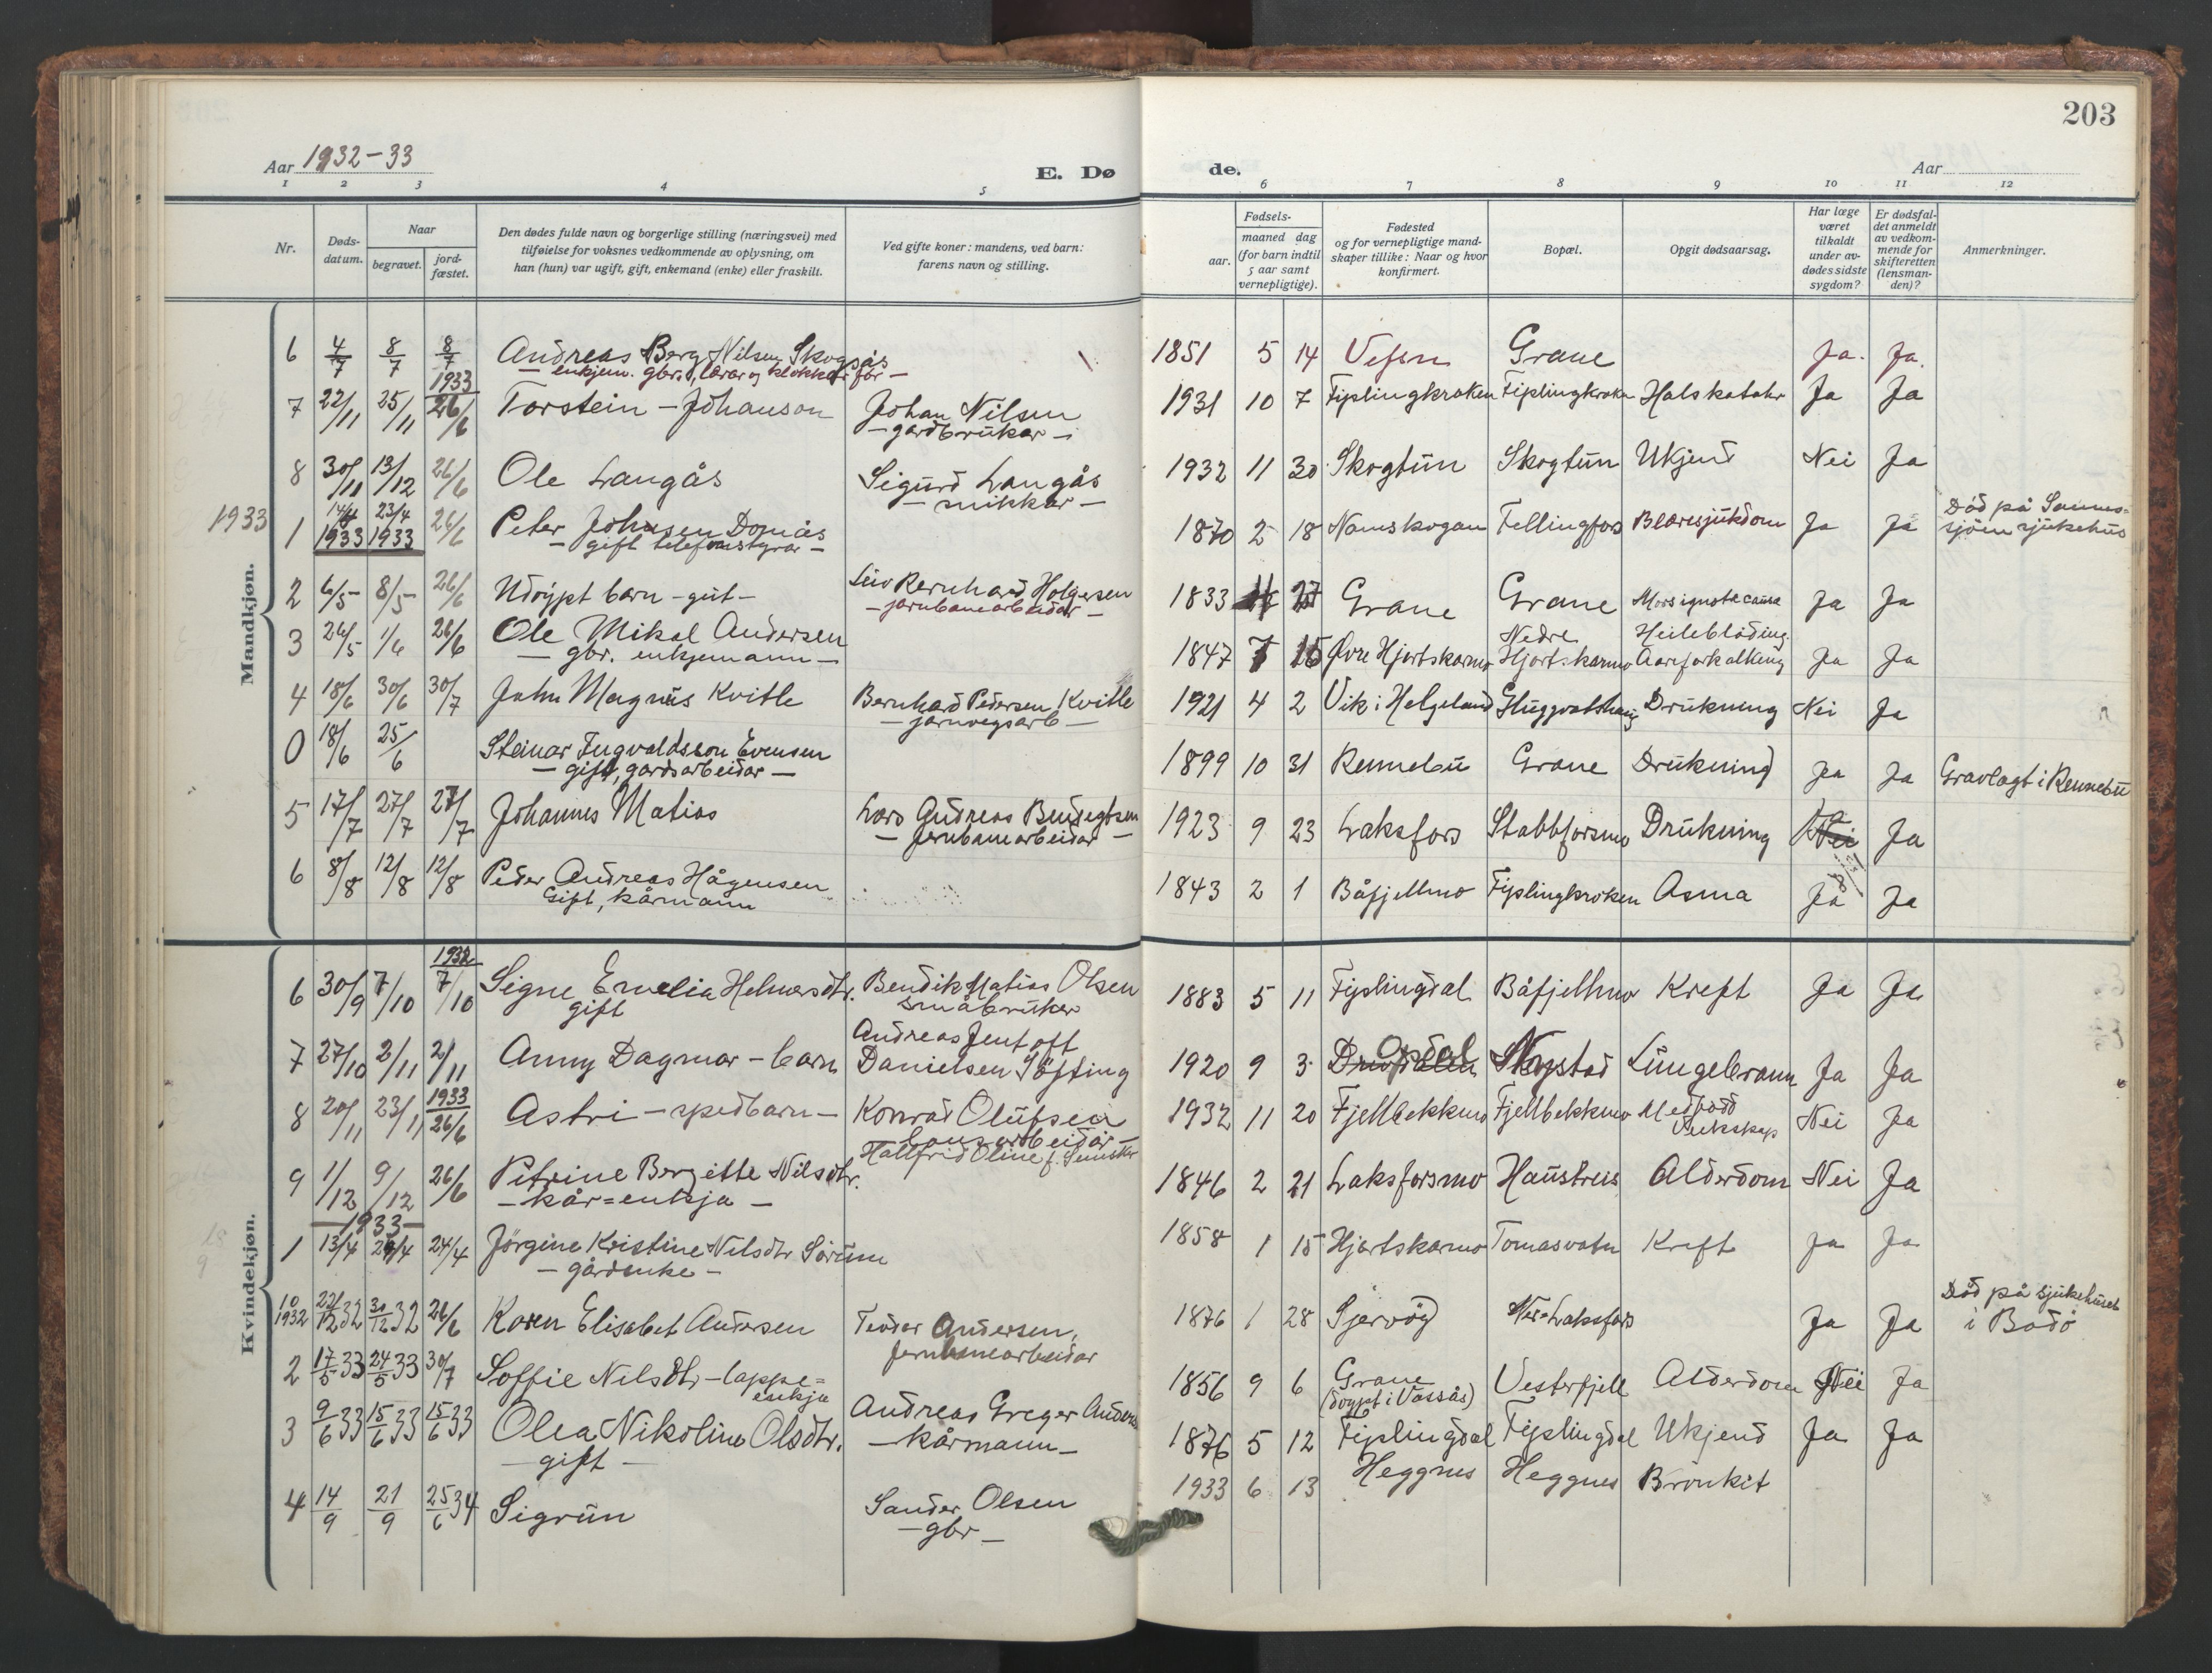 203
Aar 1932-33
E. Dø
de.
Aar
1 2 3 4 5 6 7 8 9 10 11 12
Nr.
Døds-
datum.
Naar
begravet.
jord-
fæstet.
Den dødes fulde navn og borgerlige stilling (næringsvei) med
tilføielse for voksnes vedkommende av oplysning, om
han (hun) var ugift, gift, enkemand (enke) eller fraskilt.
Ved gifte koner: mandens, ved barn:
farens navn og stilling.
Fødsels-
aar.
maaned dag
(for barn indtil
5 aar samt
vernepligtige).
Fødested
og for vernepligtige mand-
skaper tillike: Naar og hvor
konfirmert.
Bopæl.
Opgit dødsaarsag.
Har læge
været
tilkaldt
under av-
dødes sidste
sygdom?
Er dødsfal-
det anmeldt
av vedkom-
mende for
skifteretten
(lensman-
den)?
Anmerkninger.
Mandkjøn.
6 4/7 8/7 8/7 Andreas Berg Nilsen Skogsås 1851 5 14 Vefsn Grane Ja. Ja.
— enkjem. gbr., lærar og klokkar før —
1933
7 22/11 25/11 26/6 Torstein - Johanson Johan Nilsen 1931 10 7 Fiplingkroken Fiplingkroken Halskatahr Ja Ja
— gardbrukar —
8 30/11 13/12 26/6 Ole Langås Sigurd Langås 1932 11 30 Skogtun Skogtun Ukjend Nei Ja
— snikkar —
1933
1 14/4 1933 23/4 1933 26/6 Peter Johnsen Domås 1870 2 18 Namskogan Fellingfors Blæresjukdom Ja Ja Död på Sannes-
sjöen sjukehus
— gift telefonstyrar —
2 6/5 8/5 26/6 Udöypt barn - gut - Leiv Bernhard Holgersen 1833 27 Grane Grane Mors ignota causa Ja Ja
— jarnbanearbeidar —
3 26/5 1/6 26/6 Ole Mikal Andersen 1847 7 15 Øvre Hjortskarmo Nedre Hjortskarmo Heileblöding. Aareforkalking Ja Ja
— gbr. enkjemann —
4 18/6 30/6 30/7 John Magnus Kvitle Bernhard Pedersen Kvitle 1921 4 2 Vik i Helgeland Gluggvasshaug Drukning Nei Ja
— jarnvegsarb —
0 18/6 25/6 Steinar Ingvaldsson Evensen 1899 10 31 Rennebu Grane Drukning Ja Ja Gravlagt i Rennebu
— gift, gardsarbeidar —
5 17/7 27/7 27/7 Johannes Matias Lars Andreas Bendigtsen 1923 9 23 Laksfors Stabbforsmo Drukning Nei Ja
— Jernbanearbeidar —
6 8/8 12/8 12/8 Peder Andreas Hågensen 1843 2 1 Båfjellmo Fiplingkroken Asma Ja Ja
Gift, kårmann
Kvindekjøn.
1932
6 30/9 7/10 7/10 Signe Emelia Helmersdtr. Bendik Matias Olsen 1883 5 11 Fiplingdal Båfjellmo Kreft Ja Ja
gift småbruker
7 27/10 2/11 2/11 Anny Dagmar - barn Andreas Jentoft Danielsen Töfting 1920 9 3 Opdal Skogstad Lungebrann Ja Ja
1933
8 20/11 23/11 26/6 Astri - spedbarn - Konrad Olufsen 1932 11 20 Fjellbekkmo Fjellbekkmo Medfødd Veikskap Nei Ja
Hallfrid Oline f.
9 1/12 9/12 26/6 Petrine Bergitte Nilsdtr. 1846 2 21 Laksforsmo Haustreis Alderdom Nei Ja
— kår=enkja —
—1933—
1 13/4 24/4 24/4 Jörgine Kristine Nilsdtr Sörum 1858 1 15 Hjortskarmo Tomasvatn Kreft Ja Ja
— gårdenke —
10 1932 22/12 32 30/12 32 26/6 Karen Elisabet Andersen Teodor Andersen, 1876 1 28 Sjervög Ner-Laksfors Ja Ja Död på sjukehuset
i Bodö
Jernbanearbeidar
2 17/5 33 24/5 33 30/7 Soffie Nilsdtr - lappe= 1856 9 6 Grane Vesterfjell Alderdom Nei Ja
enkja (döypt i Vassås)
3 9/6 33 15/6 33 15/6 33 Olea Nikoline Olsdtr. Andreas Greger Anders 1876 5 12 Fiplingdal Fiplingdal Ukjend Ja Ja
— gift — — kårmann —
4 14/9 21/9 25/6 34 Sigrun Sander Olsen 1933 6 13 Heggnes Heggnes Bronkit
— gbr —